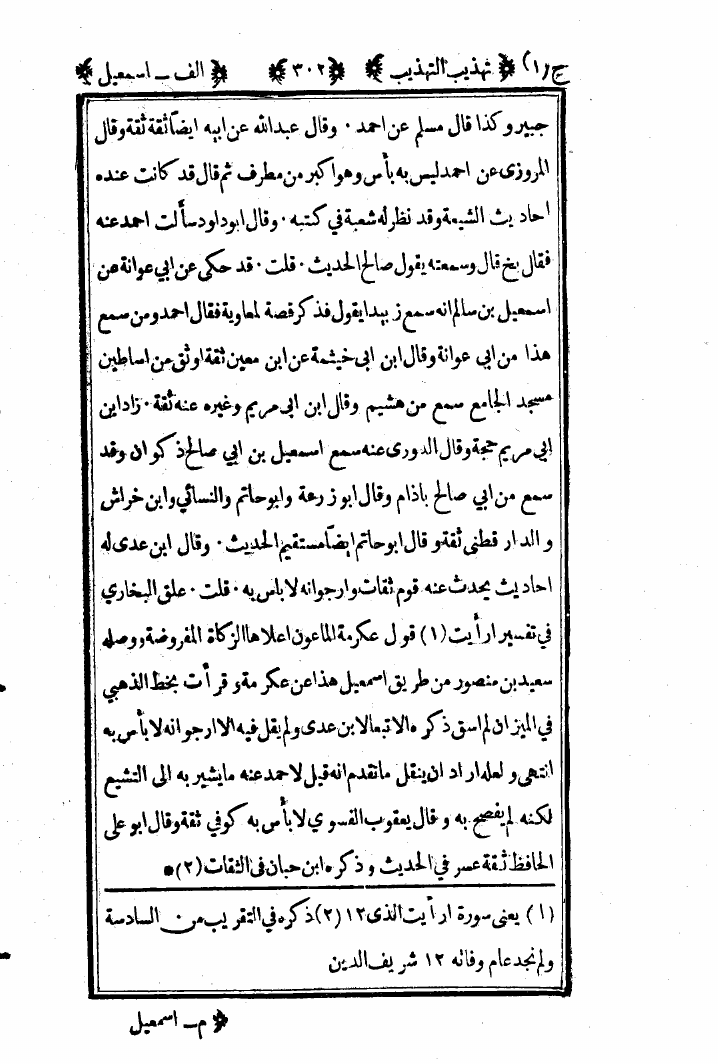 ج (١) تهذيب التهذيب ٣٠٢ الف ـ اسمعيل
جبير وكذا قال مسلم عن احمد ٠ وقال عبدالله عن ابيه ايضاً ثقة ثقة وقال
المروزى عن احمد ليس به بأس وهو اكبر من مطرف ثم قال قد كانت عنده
احاديث الشيعة وقد نظر له شعبة في كتبه ٠ وقال ابو داود سألت احمد عنه
فقال بخ قال وسمعته يقول صالح الحديث ٠ قلت ٠ قد حكى عن ابي عوانة عن
اسمعيل بن سالم انه سمع زبيدا يقول فذكر قصة لمعاوية فقال احمد ومن سمع
هذا من ابي عوانة وقال ابن ابى خيثمة عن ابن معين ثقة اوثق من اساطين
مسجد الجامع سمع من هشيم وقال ابن ابى مريم وغيره عنه ثقة ٠ زاد ابن
ابي مريم حجة وقال الدورى عنه سمع اسمعيل بن ابي صالح ذكوان وقد
سمع من ابي صالح باذام وقال ابو زرعة وابو حاتم والنسائي وابن خراش
والدار قطنى ثقة وقال ابو حاتم ايضاً مستقيم الحديث ٠ وقال ابن عدى له
احاديث يحدث عنه قوم ثقات وارجو انه لا باس به ٠ قلت ٠ علق البخاري
في تفسير ارأيت (١) قول عكرمة الماعون اعلاها الزكاة المفروضة ووصله
سعيد بن منصور من طريق اسمعيل هذا عن عكرمة وقرأت بخط الذهبي
في الميزان لم اسق ذكره الا تبعا لابن عدى ولم يقل فيه الا ارجو انه لا بأس به
انتهى ولعله اراد ان ينقل ما تقدم انه قيل لاحمد عنه ما يشير به الى التشيع
لكنه لم يفصح به وقال يعقوب الفسوي لا بأس به كوفي ثقة وقال ابو على
الحافظ ثقة عسر في الحديث وذكره ابن حبان فى الثقات (٢) *
(١) يعنى سورة ارأيت الذى ١٢ (٢) ذكره في التقريب من السادسة
ولم نجد عام وفاته ١٢ شريف الدين
م ـ اسمعيل